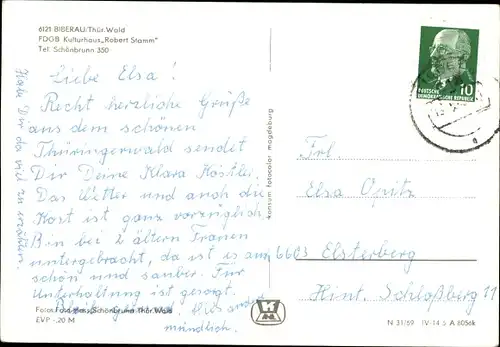 6121 BIBERAU/Thür. Wald
FDGB Kulturhaus „Robert Stamm"
Tel. Schönbrunn 350
Liebe Elsa!
Recht herzliche Grüße
aus dem schönen
Thüringerwald sendet
Dir Deine Klara Köstler.
Das Wetter und auch die
Kost ist ganz vorzüglich
Bin bei 2 ältern Frauen
untergebracht, da ist es auch
schön und sauber. Für
Unterhaltung ist gesorgt.
Bleib gesund, alles andere
mündlich.
Habe Dir da viel zu erzählen.
Foto: Foto-Hans, Schönbrunn Thür. Wald
EVP -,20 M
konsum fotocolor magdeburg
10
DEUTSCHE
DEMOKRATISCHE REPUBLIK
Frl.
Elsa Opitz
6603 Elsterberg
Hint. Schloßberg 11
N 31/69 IV-14 5 A 805dk